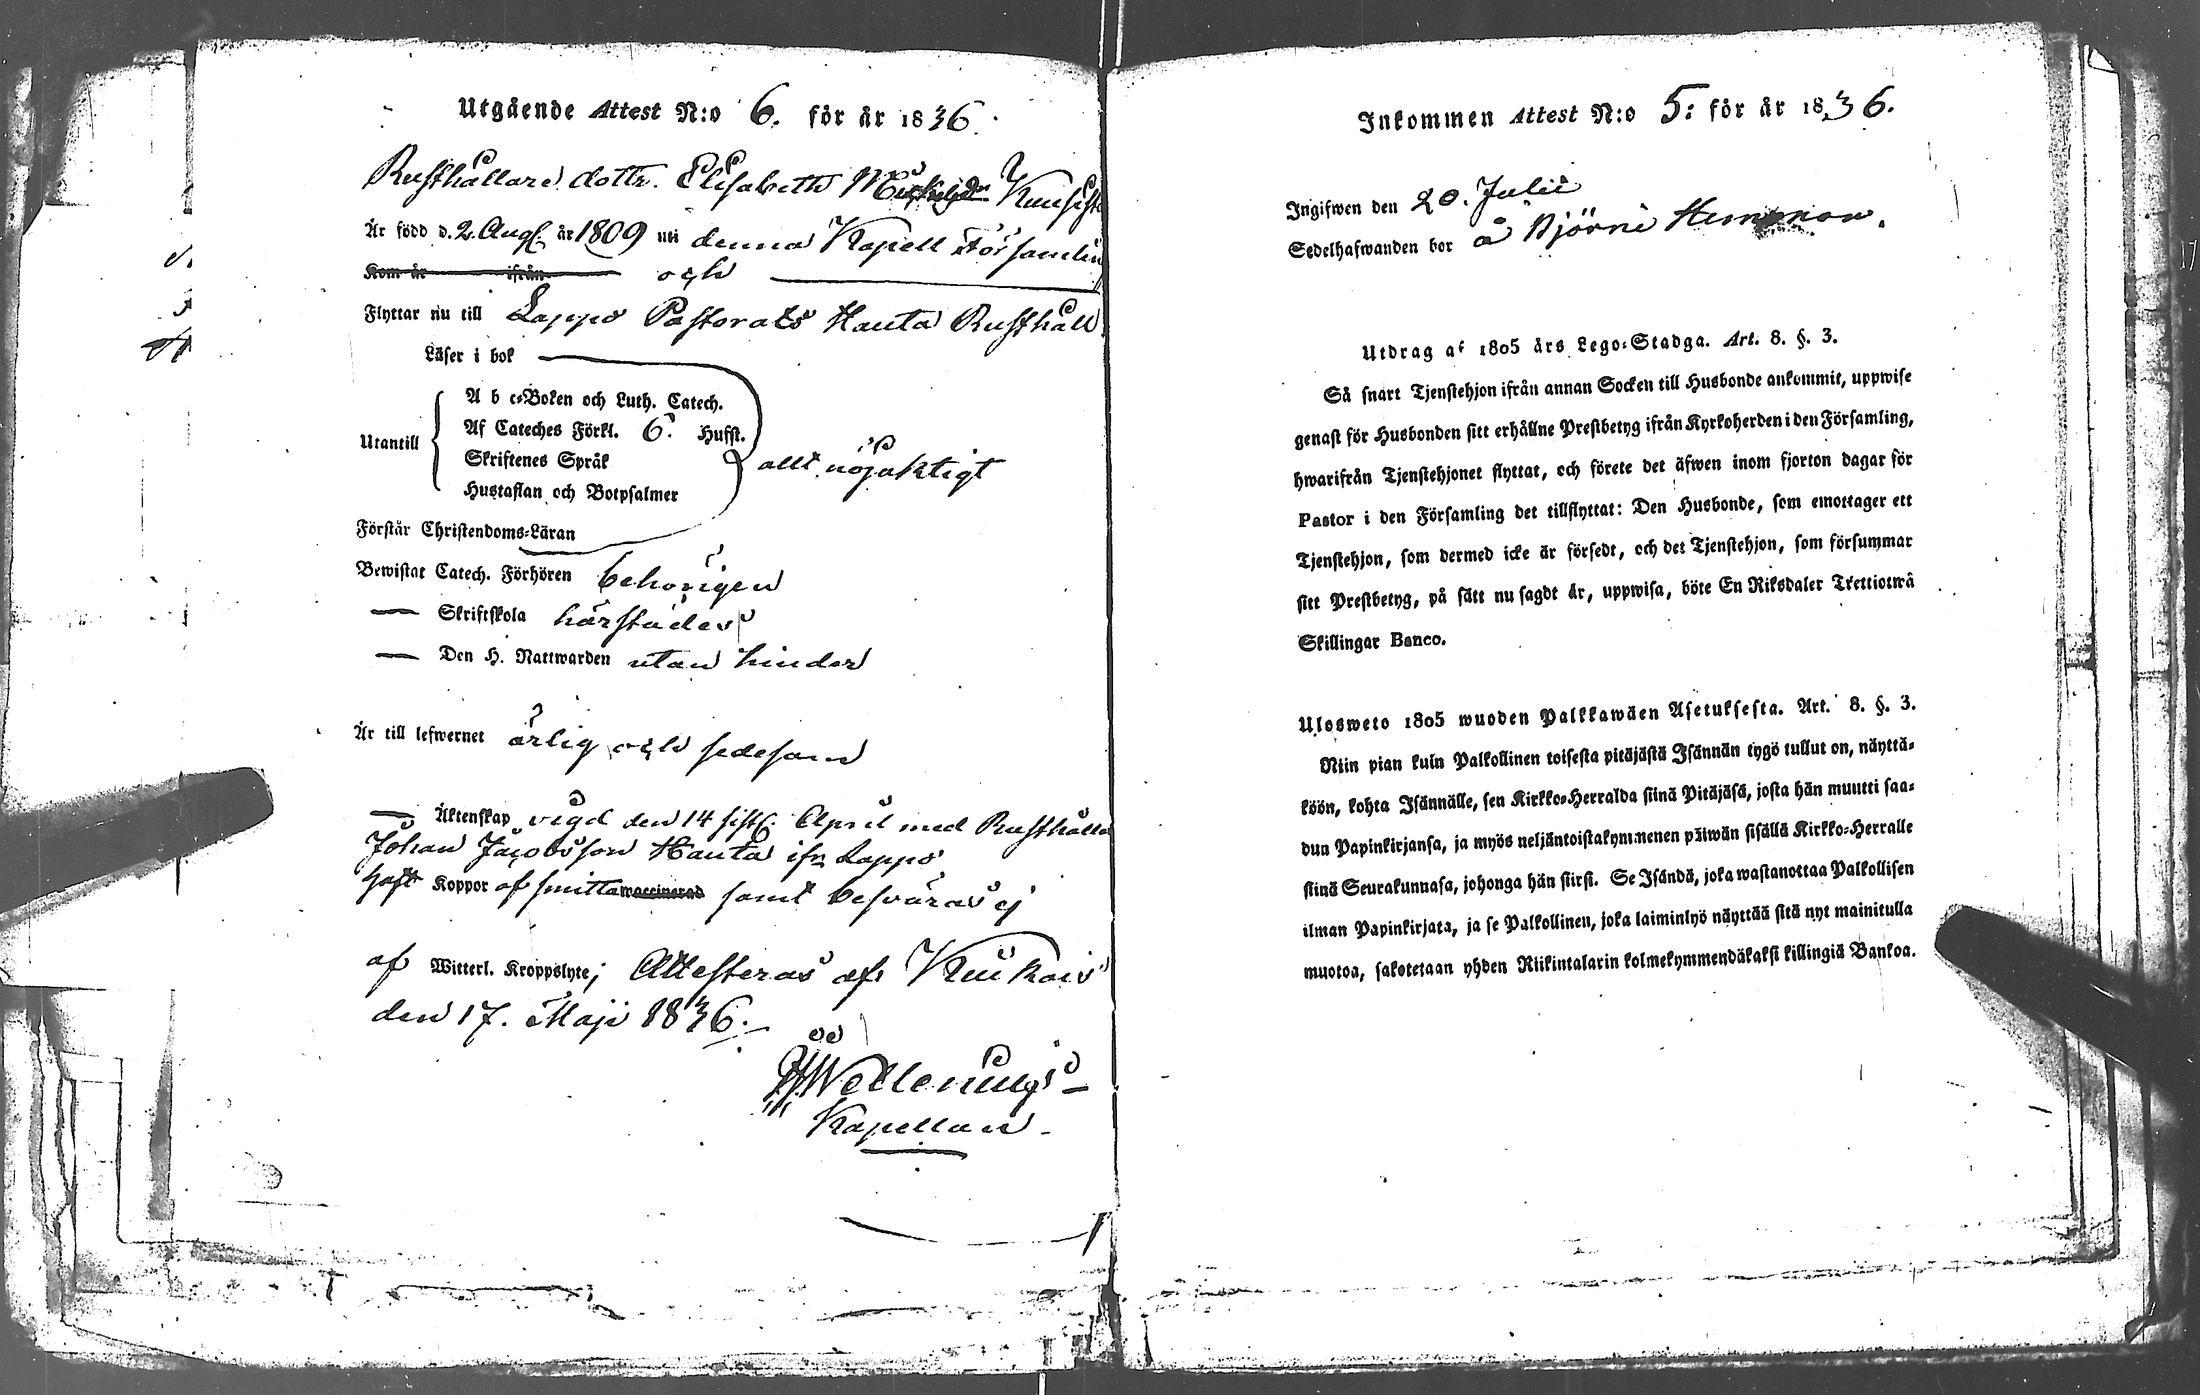 Utgående Attest N:o 6. för år 1836.
Rusthållare dottr. Elisabeth
Är född d. 2. Aug. år 1809 uti denna Kapell Församlin
Kom år ifrån och
Flyttar nu till Lappo Pastorats Hauta Rusthåll
Läser i bok
Utantill
A b c-Boken och Luth. Catech.
Af Cateches Förkl. 6. Hufst.
Skriftenes Språk
Hustaflan och Botpsalmer
allt nöjaktigt
Förstår Christendoms-Läran
Bewistat Catech. Förhören behörigen
— Skriftskola härstädes
— Den H. Nattwarden utan hinder
Är till lefwernet ärlig och sedesam
— Äktenskap vigd den 14 sistl. April med Rusthålla
Johan Jacobsson Hauta ifr. Lappo
haft Koppor af smitta waccinerad samt besväras ej
af Witterl. Kroppslyte; Attesteras af
den 17. Maji 1836.
Kapellan
Inkommen Attest N:o 5: för år 1836.
Ingifwen den 20. Julii
Sedelhafwanden bor å Björni
Utdrag af 1805 års Lego-Stadga. Art. 8. §. 3.
Så snart Tjenstehjon ifrån annan Socken till Husbonde ankommit, uppwise
genast för Husbonden sitt erhållne Prestbetyg ifrån Kyrkoherden i den Församling,
hwarifrån Tjenstehjonet flyttat, och förete det äfwen inom fjorton dagar för
Pastor i den Församling det tillflyttat: Den Husbonde, som emottager ett
Tjenstehjon, som dermed icke är försedt, och det Tjenstehjon, som försummar
sitt Prestbetyg, på sätt nu sagdt är, uppwisa, böte En Riksdaler Trettiotwå
Skillingar Banco.
Ulosweto 1805 wuoden Palkkawäen Asetuksesta. Art. 8. §. 3.
Niin pian kuin Palkollinen toisesta pitäjästä Isännän tygö tullut on, näyttä-
köön, kohta Isännälle, sen Kirkko-Herralda siinä Pitäjäsä, josta hän muutti saa-
dun Papinkirjansa, ja myös neljäntoistakymmenen päiwän sisällä Kirkko-Herralle
siinä Seurakunnasa, johonga hän siirsi. Se Isändä, joka wastanottaa Palkollisen
ilman Papinkirjata, ja se Palkollinen, joka laiminlyö näyttää sitä nyt mainitulla
muotoa, sakotetaan yhden Riikintalarin kolmekymmendäkaksi killingiä Bankoa.